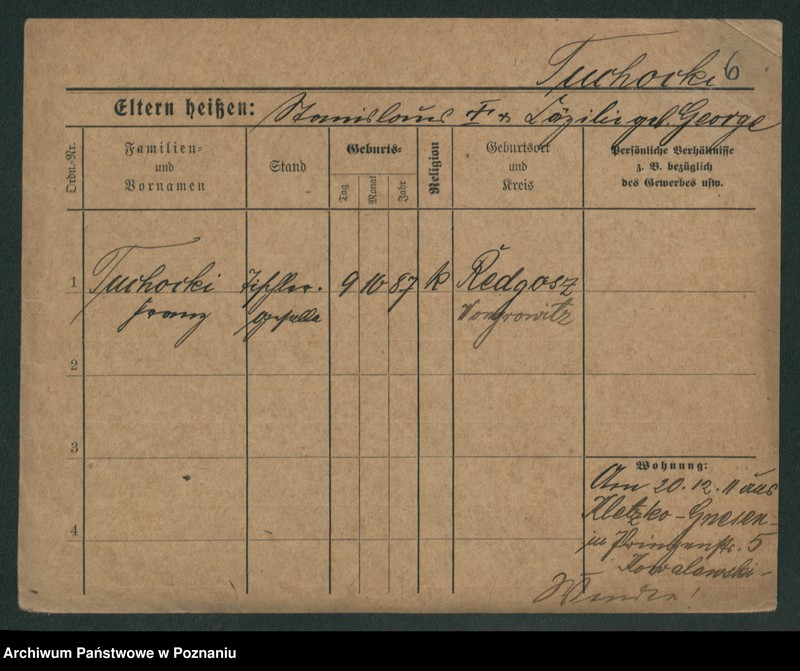 Tuchocki 6
Eltern heißen: Stanislaus † & Zäzilie geb. George
Ordn.-Nr.
Familien- und Vornamen
Stand
Geburts-
Tag
Monat
Jahr
Religion
Geburtsort und Kreis
Persönliche Verhältnisse z. B. bezüglich des Gewerbes usw.
1 Tuchocki Tischler- 9 10 87 k Redgosz
Franz geselle Wongrowitz
2
3
4
Wohnung:
Am 20.12.11 aus
Kletzko-Gnesen-
in Prinzenstr. 5
Kowalewski-
Wenden!
Archiwum Państwowe w Poznaniu